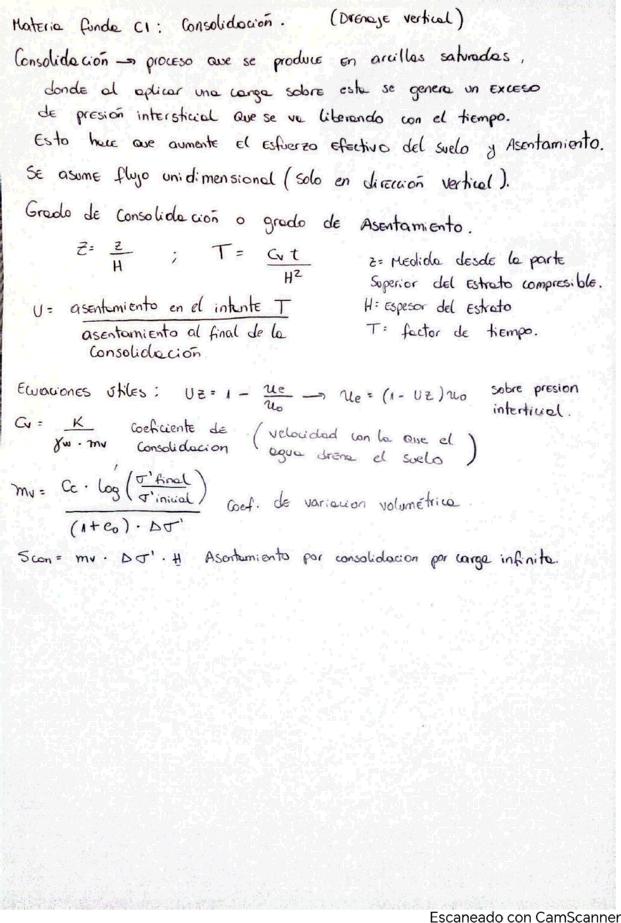 Materia funda C1: Consolidación. (Drenaje vertical)
Consolidación → proceso que se produce en arcillas saturadas,
donde al aplicar una carga sobre esta se genera un exceso
de presión intersticial que se va liberando con el tiempo.
Esto hace que aumente el esfuerzo efectivo del suelo y Asentamiento.
Se asume flujo unidimensional (solo en dirección vertical).
Grado de Consolidación o grado de Asentamiento.
Z = z/H ; T = Cv t / H²
z = Medida desde la parte
Superior del Estrato compresible.
H: Espesor del Estrato
T: factor de tiempo.
U = asentamiento en el intante T / asentamiento al final de la Consolidación
Ecuaciones útiles: Uz = 1 - ue/uo → ue = (1 - Uz) uo sobre presion
interticial.
Cv = K / γw · mv Coeficiente de Consolidacion (velocidad con la que el agua drena el suelo)
mv = Cc · log(σ'final / σ'inicial) / (1+e₀) · Δσ' Coef. de variacion volumétrica.
Scon = mv · Δσ' · H Asentamiento por consolidacion por carga infinita.
Escaneado con CamScanner